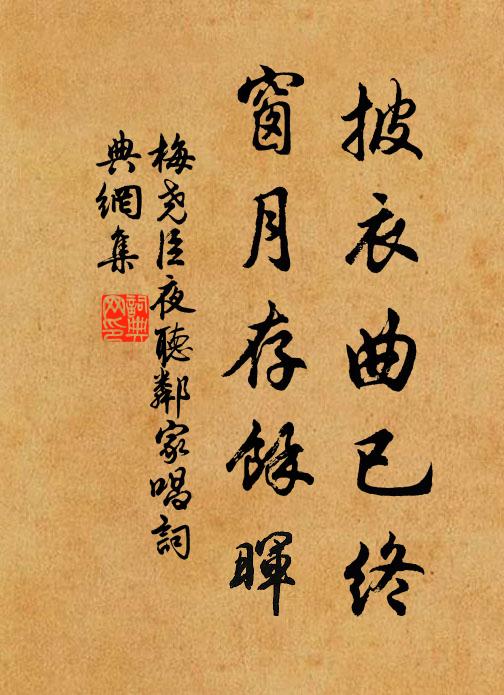 披衣曲已终
窗月存餘暉
梅堯臣夜聽鄰家唱詞
典網集
詞典
网印